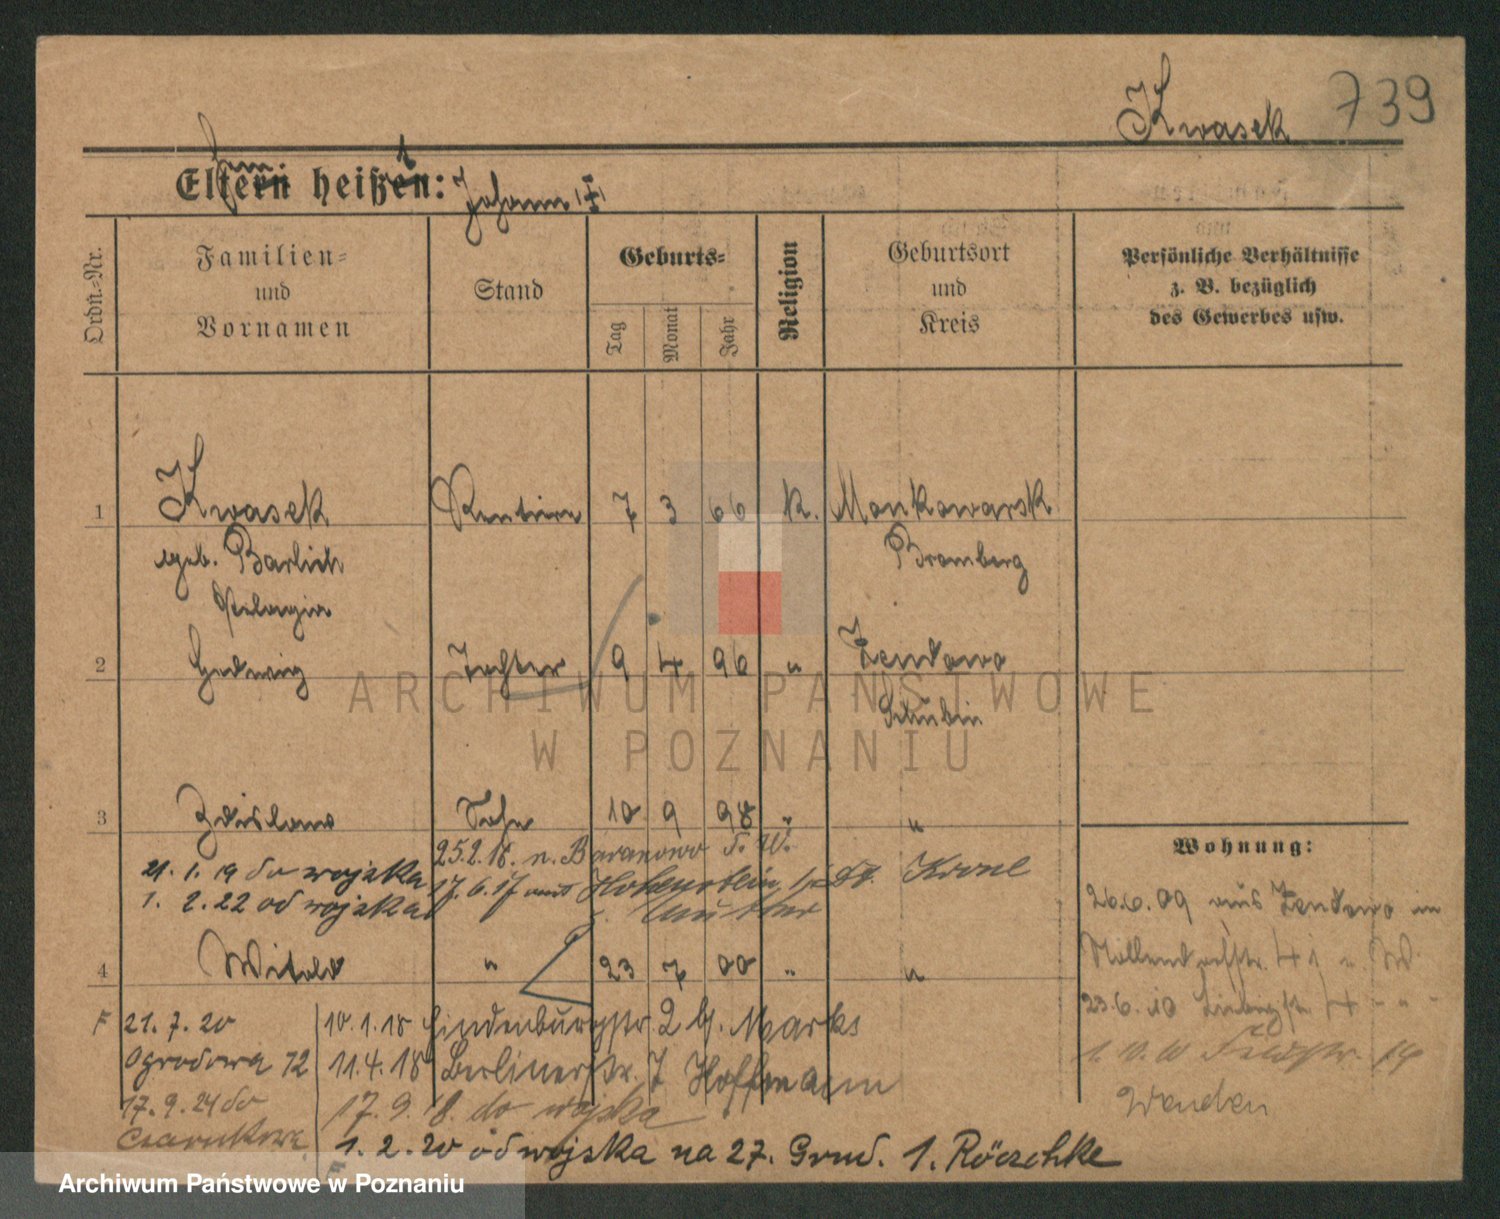 Kwasek 739
Eltern heißen: Johann
Ordn.-Nr.
Familien-
und
Vornamen
Stand
Geburts-
Tag
Monat
Jahr
Religion
Geburtsort
und
Kreis
Persönliche Verhältnisse
z. B. bezüglich
des Gewerbes usw.
1 Kwasek Rentiere 7 3 66 k. Monkowarsk
geb. Barlich Bromberg
Pelagia
2 Hedwig Tochter 9 4 96 " Zendowo
Schubin
3 Zdislaw Sohn 10 9 98 " "
25.2.18. n. Baranowo
21. 1. 19 do wojska 17. 6. 17 aus Hohenstein Dt. Krone
1. 2. 22 od wojska z. Mutter
4 Witold " 23 7 00 " "
Wohnung:
26.6.09 aus Zendowo in
41
23.6.10 4 " "
1.10.10 Feldstr. 19
Wenden
F 21. 7. 20
Ogrodowa 12
17. 9. 24 do
Czarnkowa
10. 1. 18 Hindenburgstr 2 b. Marks
11. 4. 18 Berlinerstr. 7 Hoffmann
17. 9. 18. do wojska
1. 2. 20 od wojska na 27. Grud. 1. Röczchke
ARCHIWUM PAŃSTWOWE
W POZNANIU
Archiwum Państwowe w Poznaniu